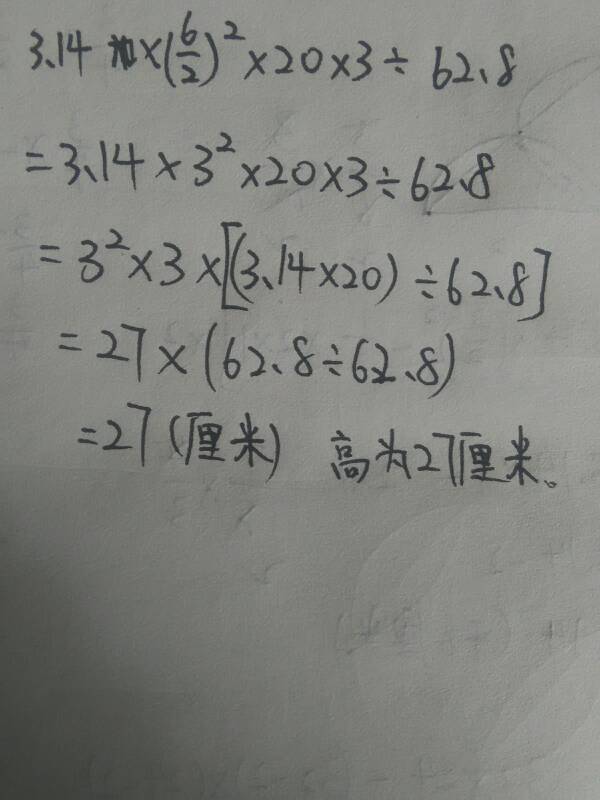 3.14 ×(6/2)²×20×3÷62.8
=3.14×3²×20×3÷62.8
=3²×3×[(3.14×20)÷62.8]
=27×(62.8÷62.8)
=27(厘米) 高为27厘米。